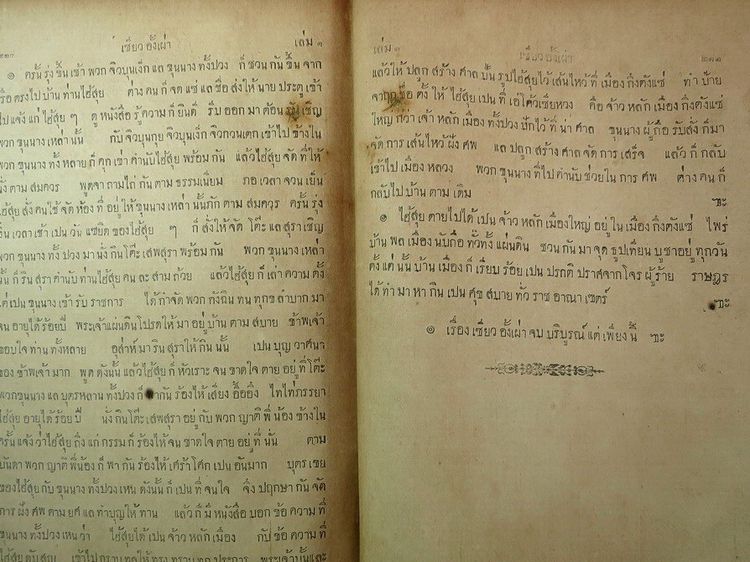 เซียว อั้งเผ่า เล่ม ๑
๏ ครั้น รุ่ง ขึ้น เช้า พวก จิวบุนเง็ก แล ขุนนาง ทั้งปวง ก็ ชวน กัน ขึ้น จาก
เรือ ตรง ไป บ้าน ท่าน ไฮ้สุย ต่าง คน ก็ จด แซ่ แล ชื่อ ส่ง ให้ นาย ประตู เข้า
ไป แจ้ง แก่ ไฮ้สุย ๆ ดู หนังสือ รู้ ความ ก็ ยินดี รีบ ออก มา ต้อน รับ เชิญ
พวก ขุนนาง เหล่า นั้น กับ จิวบุนกุย จิวบุนเง็ก จิวกวนเตก เข้า ไป ข้าง ใน
พวก ขุนนาง ทั้ง หลาย ก็ คุก เข่า คำนับ ไฮ้สุย พร้อม กัน แล้ว ไฮ้สุย จัด ที่ ให้
นั่ง ตาม สมควร พูด จา ถาม ไถ่ กัน ตาม ธรรมเนียม
ไฮ้สุย สั่ง คน ใช้ จัด ห้อง ที่ อยู่ ให้ ขุนนาง เหล่า นั้น พัก ตาม สมควร ครั้น รุ่ง
ขึ้น เวลา เช้า เปน วัน แซยิด ของ ไฮ้สุย ๆ ก็ สั่ง ให้ จัด โต๊ะ แล สุรา เชิญ
พวก ขุนนาง ทั้ง ปวง มา นั่ง กิน โต๊ะ เสพ สุรา พร้อม กัน พวก ขุนนาง เหล่า
นั้น ก็ ริน สุรา คำนับ ท่าน ไฮ้สุย คน ละ สาม ถ้วย แล้ว ไฮ้สุย ก็ เล่า ความ ตั้ง
แต่ เปน ขุนนาง เข้า รับ ราชการ ได้ กำจัด พวก กังฉิน ทน ทุกข ลำบาก มา
จน อายุ ได้ ร้อย ปี พระเจ้า แผ่นดิน โปรด ให้ มา อยู่ บ้าน ตาม สบาย ข้าพเจ้า
ขอบใจ ท่าน ทั้งหลาย อุส่าห์ มา ริน สุรา ให้ กิน นั้น เปน บุญ วาศนา
ของ ข้าพเจ้า มาก พูด ดังนั้น แล้ว ไฮ้สุย ก็ หัวเราะ จน ขาด ใจ ตาย อยู่ ที่ โต๊ะ
พวก ขุนนาง แล บุตร หลาน ทั้งปวง ก็ พา กัน ร้องไห้ เสียง อื้ออึง
ไฮ้สุย อายุ ได้ ร้อย ปี นั่ง กิน โต๊ะ เสพ สุรา อยู่ กับ พวก ญาติ พี่ น้อง ข้าง ใน
ครั้น แจ้ง ว่า ไฮ้สุย ถึง แก่ กรรม ก็ ร้องไห้ จน ขาด ใจ ตาย อยู่ ที่ นั้น ตาม
บันดา พวก ญาติ พี่น้อง ก็ พา กัน ร้องไห้ เศร้า โศก เปน อันมาก บุตร เขย
ของ ไฮ้สุย กับ ขุนนาง ทั้งปวง เหน ดังนั้น ก็ เปน ที่ จน ใจ จึง ปฤกษา กัน จัด
การ ฝัง ศพ ตาม ยศ แล ทำ บุญ ให้ ท่าน แล้ว ก็ มี หนังสือ บอก ข้อ ความ ที่
ขุนนาง ทั้งปวง เหน ว่า ไฮ้สุย ได้ เปน จ้าว หลัก เมือง กับ ข้อ ความ ที่
เข้า ไป กราบ ทูล ให้ ทรง ทราบ ทุก ประการ พระเจ้า
เล่ม ๑ เซียว อั้งเผ่า
แล้ว ให้ ปลูก สร้าง ศาล ปั้น รูป ไฮ้สุย ไว้ เส้น ไหว้ ที่ เมือง กึงตังแซ่ ทำ ป้าย
จาฤก ชื่อ ตั้ง ให้ ไฮ้สุย เปน ที่ คือ จ้าว หลัก เมือง กึงตังแซ่
ใหญ่ กว่า เจ้า หลัก เมือง ทั้งปวง ปัก ไว้ ที่ น่า ศาล ขุนนาง ผู้ ถือ รับสั่ง ก็ มา
จัด การ เส้น ไหว้ ฝัง ศพ แล ปลูก สร้าง ศาล จัด การ เสร็จ แล้ว ก็ กลับ
เข้า ไป เมือง หลวง พวก ขุนนาง ที่ ไป คำนับ ช่วย ใน การ ศพ ต่าง คน ก็
กลับ ไป บ้าน ตาม เดิม ๚ะ
๏ ไฮ้สุย ตาย ไป ได้ เปน จ้าว หลัก เมือง ใหญ่ อยู่ ใน เมือง กึงตังแซ่ ไพร่
บ้าน พล เมือง นับถือ ทั่ว ทั้ง แผ่นดิน ชวน กัน มา จุด ธูป เทียน บูชา อยู่ ทุก วัน
ตั้ง แต่ นั้น บ้าน เมือง ก็ เรียบ ร้อย เปน ปรกติ ปราศจาก โจร ผู้ร้าย ราษฎร
ได้ ทำ มา หา กิน เปน ศุข สบาย ทั่ว ราช อาณา เขตร์ ๚ะ
๏ เรื่อง เซียว อั้งเผ่า จบ บริบูรณ์ แต่ เพียง นี้ ๚ะ